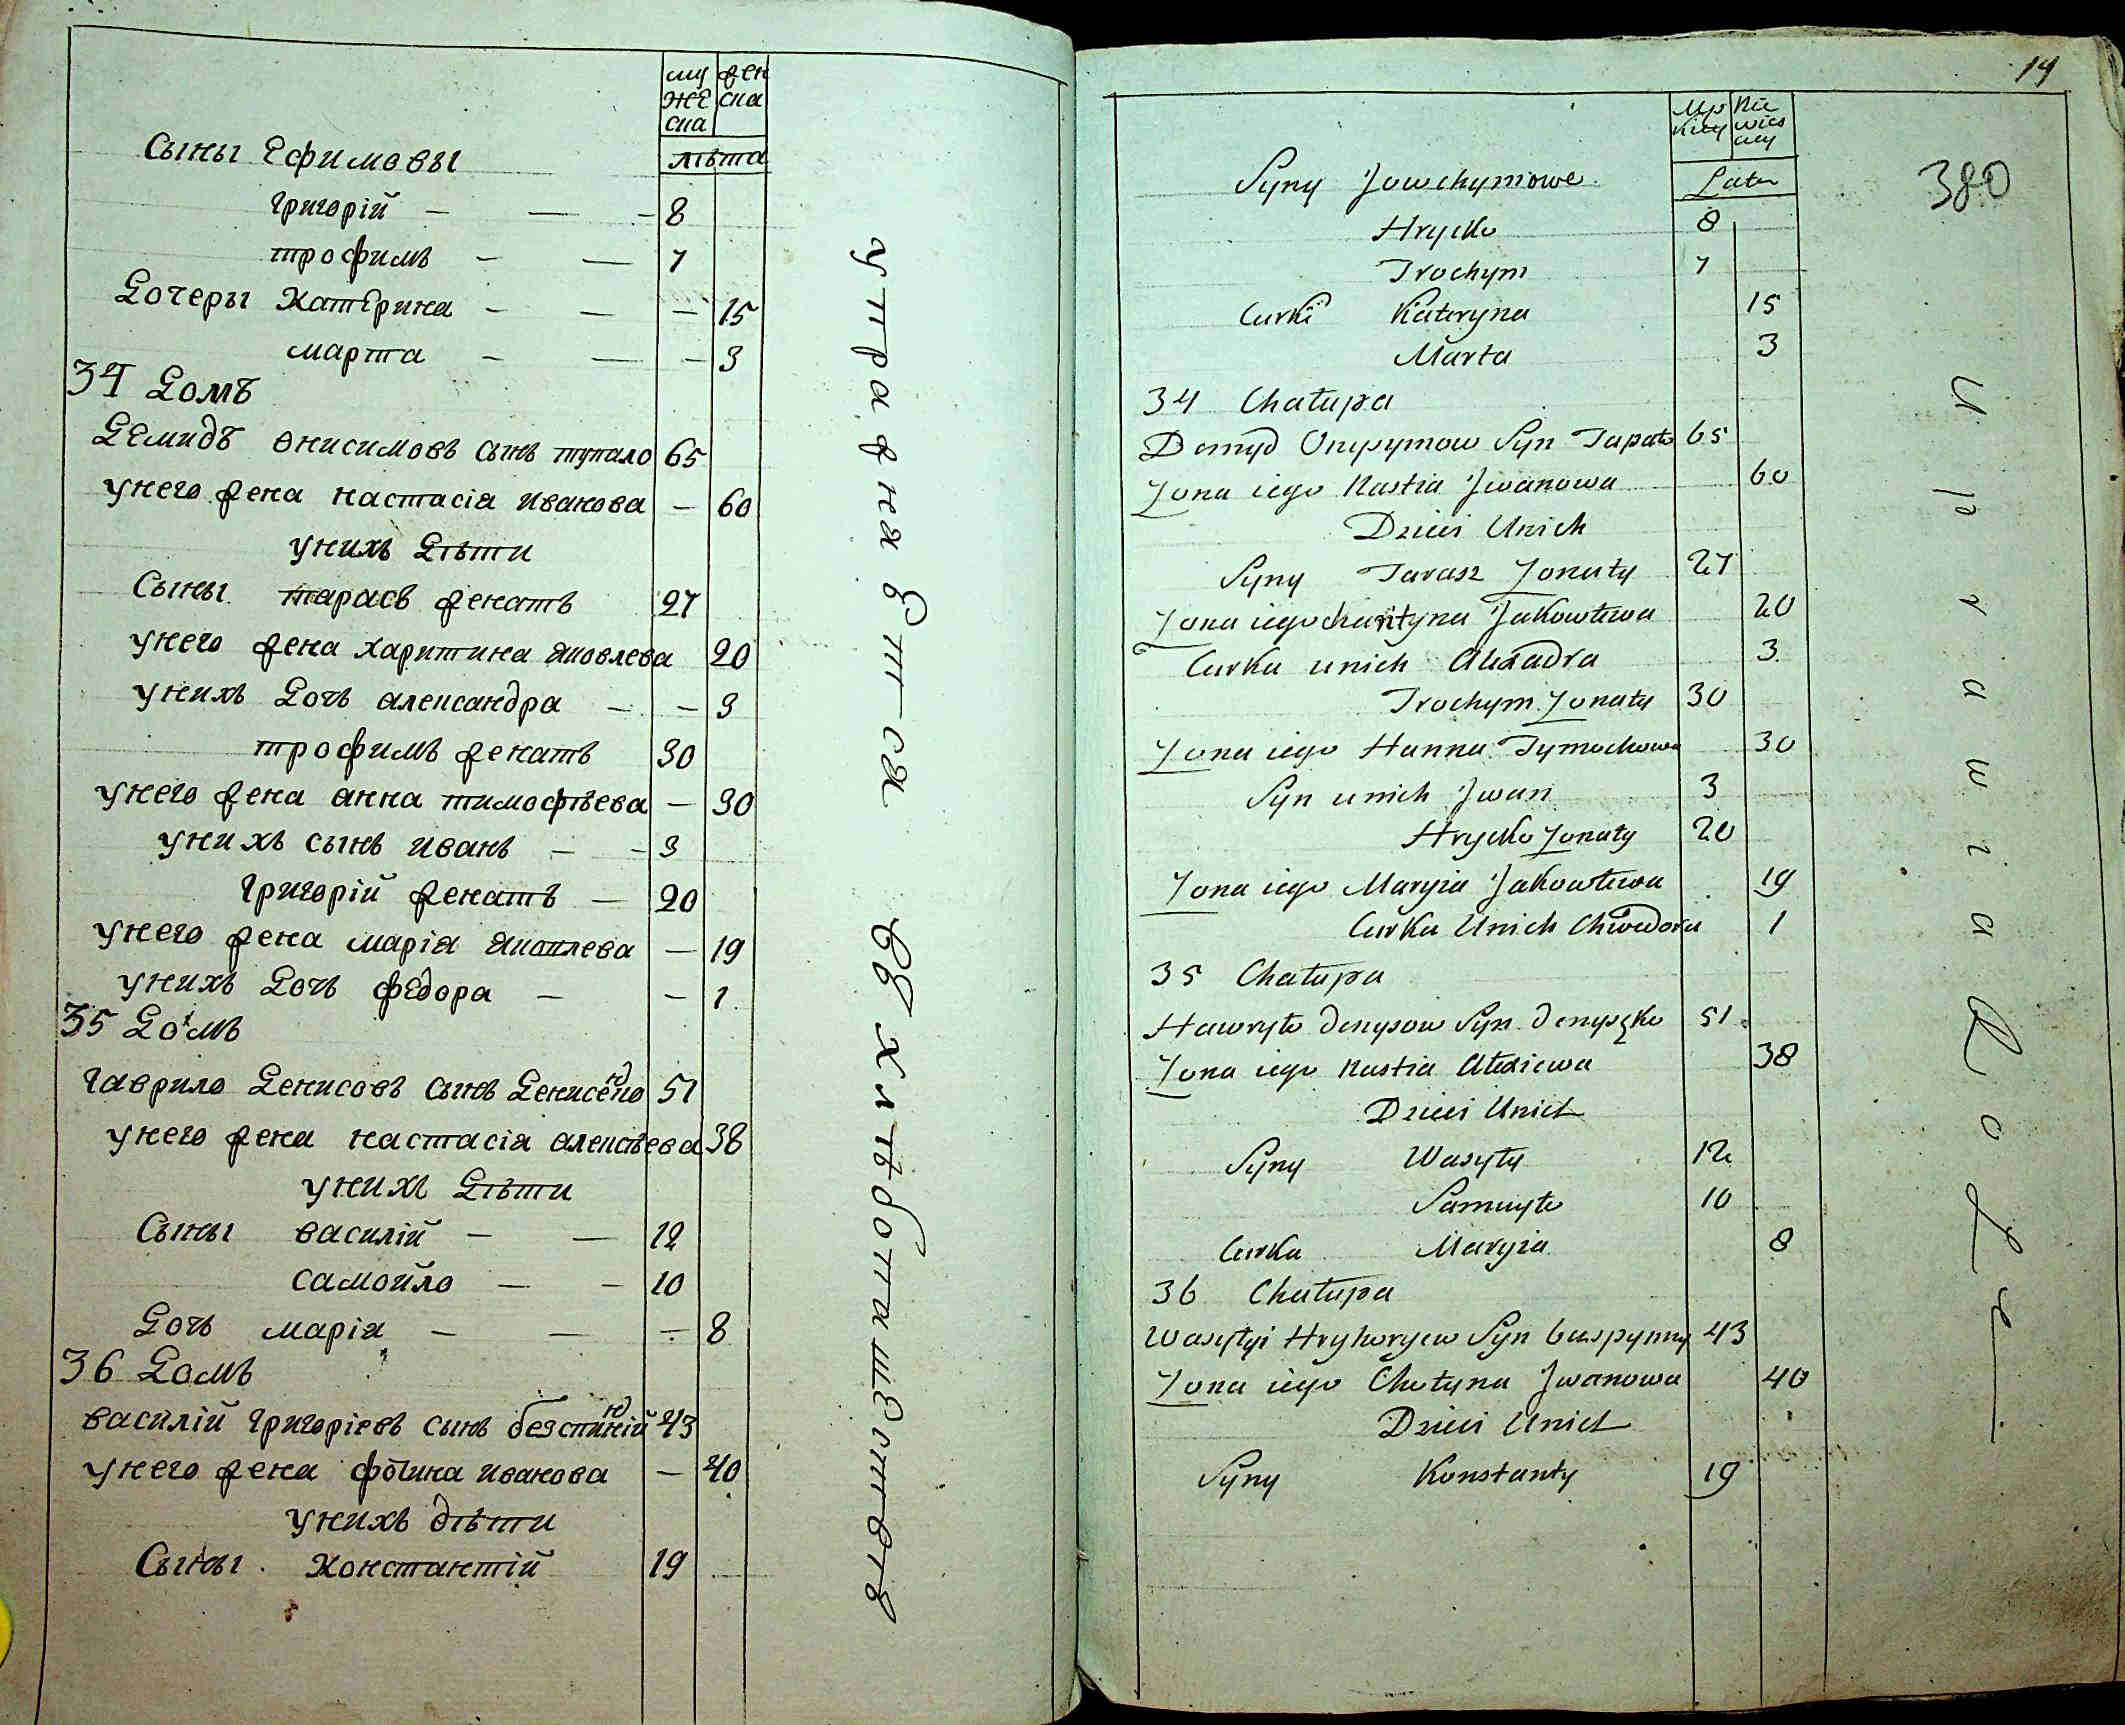 му
жс
ска
жен
ска
лѣта
Сыны Ефимовы
григорій — — — 8
трофимъ — — 7
Дочеры Катерина — — — 15
марта — — — 3
34 Домъ
Демидъ онисимовъ сынъ тупало 65
унего жена настасія иванова — 60
унихъ Дѣти
Сыны тарасъ женатъ 27
унего жена харитина яковлева 20
унихъ Дочь александра — — 3
трофимъ женатъ 30
унего жена анна тимофѣева — 30
унихъ сынъ иванъ — — 3
григорій женатъ — 20
унего жена марія яковлева — 19
унихъ Дочь федора — — 1
35 Домъ
гаврило Денисовъ сынъ Денисенко 51
унего жена настасія алексѣева 38
унихъ Дѣти
Сыны василій — — 12
самойло — — 10
Дочь марія — — — 8
36 Домъ
василій григоріевъ сынъ безспинній 43
унего жена фотина иванова — 40
унихъ дѣти
Сыны константій 19
упражняется въ хлѣбопашествѣ
14
380
Męz
kiey
Nie
wies
ciey
Lata
Syny Jowchymowe
Hrycko 8
Trochym 7
Curki Kateryna 15
Marta 3
34 Chałupa
Demyd Onysymow Syn Tupało 65
Zona iego Nastia Jwanowa 60
Dzieci Unich
Syny Tarasz Zonaty 27
Zona iego charytyna Jakowlewa 20
Curka unich Alexadra 3
Trochym Zonaty 30
Zona iego Hanna Tymochowa 30
Syn unich Jwan 3
Hrycko Zonaty 20
Zona iego Maryia Jakowlewa 19
Curka Unich Chwedora 1
35 Chałupa
Hawryło denysow Syn denysęko 51
Zona iego Nastia Alexiewa 38
Dzieci Unich
Syny Wasyly 12
Samuyło 10
Curka Maryia 8
36 Chałupa
Wasylyi Hryhoryew Syn bespynny 43
Zona iego Chotyna Jwanowa 40
Dzieci Unich
Syny Konstanty 19
Uprawia Role